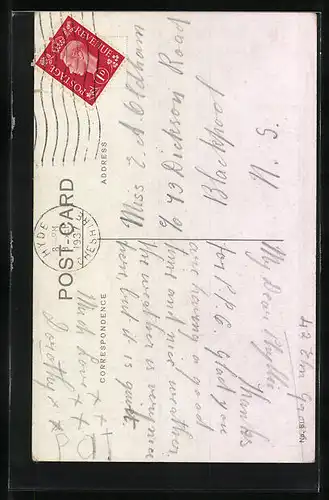 POSTAGE REVENUE
1½D
HYDE
8 PM
1937
CHESHIRE
POST-CARD
CORRESPONDENCE
ADDRESS
42 Elm
My Dear Phyllis
Thanks
for P.P.C. Glad you
are having a good
time and nice weather.
The weather is
here but it is quiet.
With Love x x
Dorothy x x
Miss E. A. Oldham
c/o 49 Dickson Road
Blackpool
N. S.